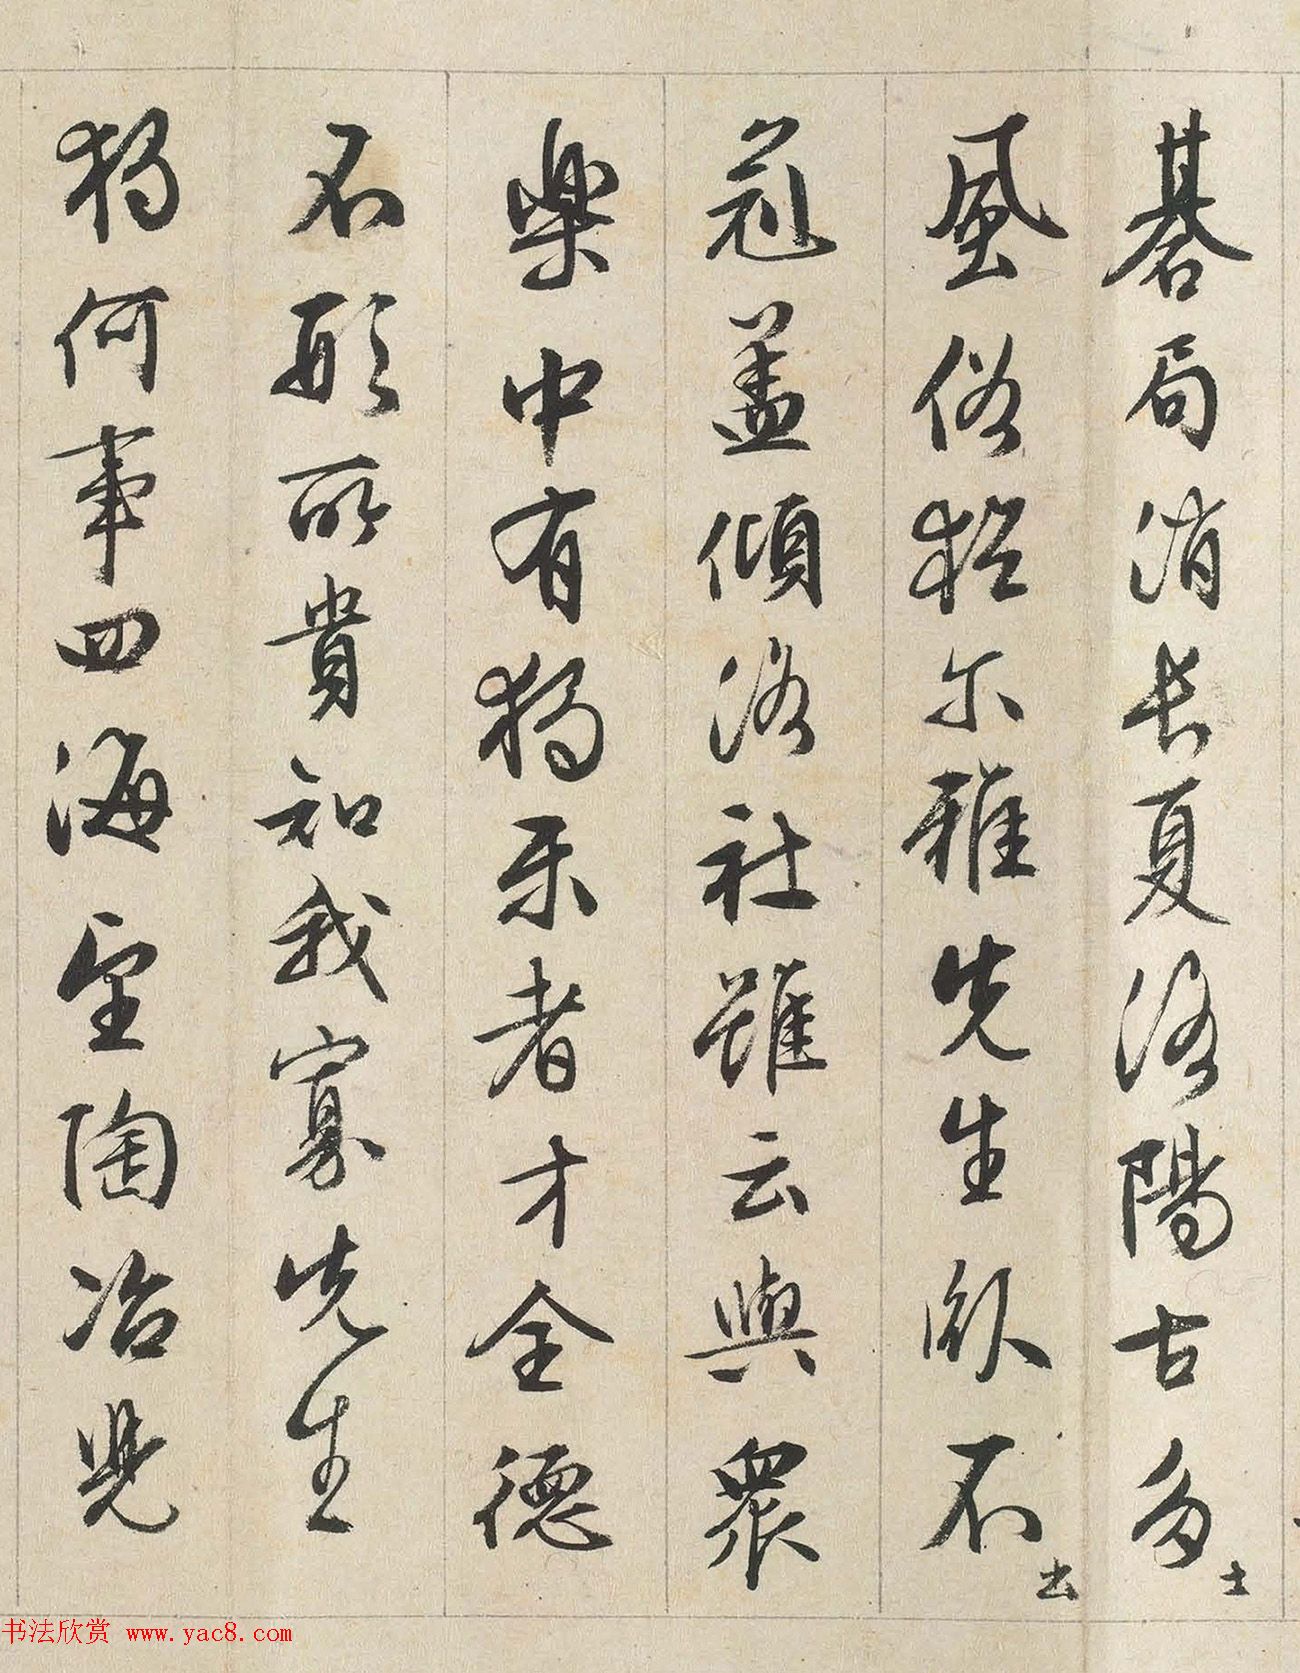 碁局消長夏洛陽古多士
風俗猶尔雅先生卧不出
冠盖傾洛社雖云與衆
樂中有獨樂者才全德
不形所貴知我寡先生
獨何事四海望陶冶児
书法欣赏 www.yac8.com